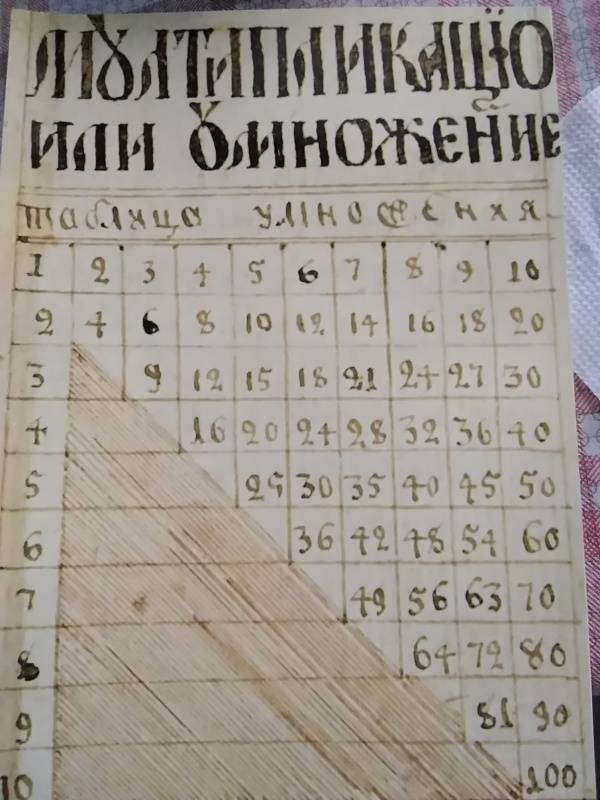 МꙋЛТИПЛИКАЦЇО
ИЛИ ꙋМНОЖЕНИЕ
таблица умножения
1 2 3 4 5 6 7 8 9 10
2 4 6 8 10 12 14 16 18 20
3 9 12 15 18 21 24 27 30
4 16 20 24 28 32 36 40
5 25 30 35 40 45 50
6 36 42 48 54 60
7 49 56 63 70
8 64 72 80
9 81 90
10 100